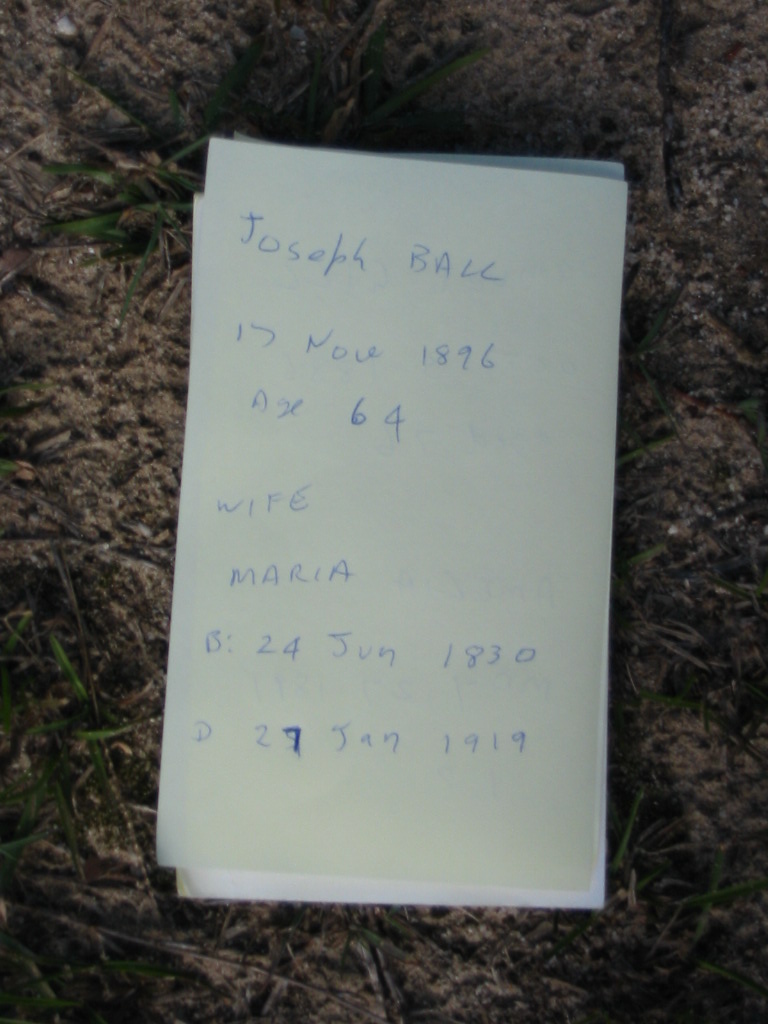 Joseph BALL
17 Nov 1896
Age 64
WIFE
MARIA
B: 24 Jun 1830
D 27 Jan 1919